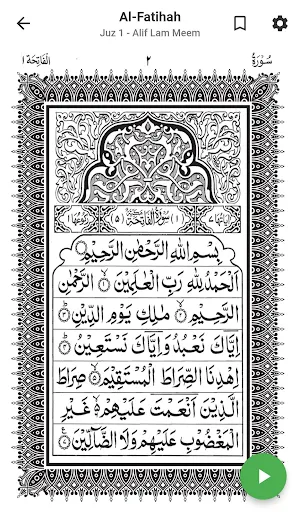 Al-Fatihah
Juz 1 - Alif Lam Meem
الفَاتِحَة ١
٢
سُورَة
اٰيَاتُهَا ٧
(١) سُوْرَةُ الْفَاتِحَةِ (٥)
رُكُوْعُهَا ١
بِسْمِ اللّٰهِ الرَّحْمٰنِ الرَّحِيْمِ
اَلْحَمْدُ لِلّٰهِ رَبِّ الْعٰلَمِيْنَ ۙ﴿١﴾ الرَّحْمٰنِ
الرَّحِيْمِ ۙ﴿٢﴾ مٰلِكِ يَوْمِ الدِّيْنِ ؕ﴿٣﴾
اِيَّاكَ نَعْبُدُ وَاِيَّاكَ نَسْتَعِيْنُ ؕ﴿٤﴾
اِهْدِنَا الصِّرَاطَ الْمُسْتَقِيْمَ ۙ﴿٥﴾ صِرَاطَ
الَّذِيْنَ اَنْعَمْتَ عَلَيْهِمْ ۙ﴿٦﴾ غَيْرِ
الْمَغْضُوْبِ عَلَيْهِمْ وَلَا الضَّآلِّيْنَ ﴿٧﴾